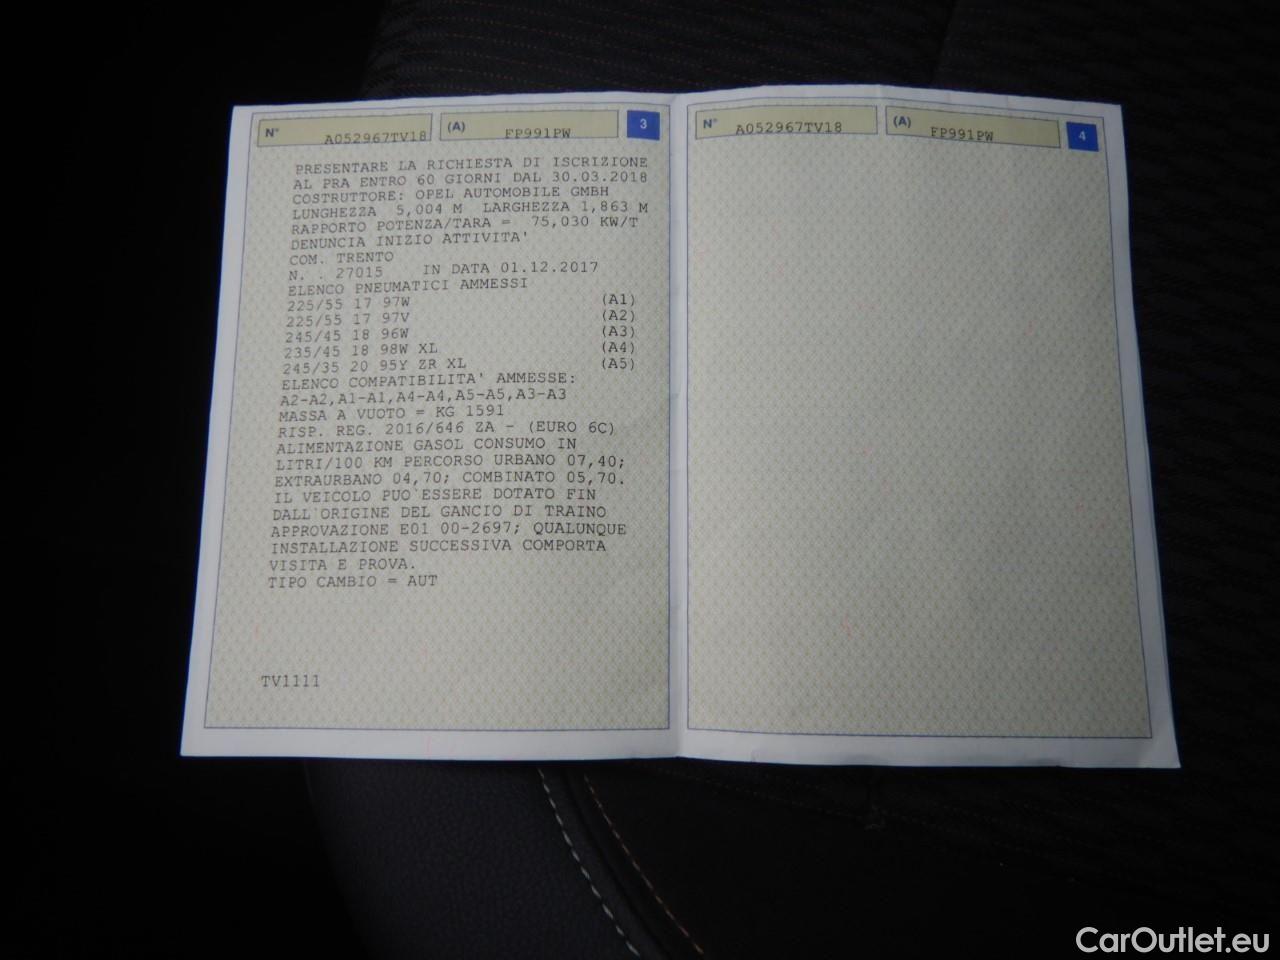 N° A052967TV18 (A) FP991PW 3
PRESENTARE LA RICHIESTA DI ISCRIZIONE
AL PRA ENTRO 60 GIORNI DAL 30.03.2018
COSTRUTTORE: OPEL AUTOMOBILE GMBH
LUNGHEZZA 5,004 M LARGHEZZA 1,863 M
RAPPORTO POTENZA/TARA = 75,030 KW/T
DENUNCIA INIZIO ATTIVITA'
COM. TRENTO
N. . 27015 IN DATA 01.12.2017
ELENCO PNEUMATICI AMMESSI
225/55 17 97W (A1)
225/55 17 97V (A2)
245/45 18 96W (A3)
235/45 18 98W XL (A4)
245/35 20 95Y ZR XL (A5)
ELENCO COMPATIBILITA' AMMESSE:
A2-A2,A1-A1,A4-A4,A5-A5,A3-A3
MASSA A VUOTO = KG 1591
RISP. REG. 2016/646 ZA - (EURO 6C)
ALIMENTAZIONE GASOL CONSUMO IN
LITRI/100 KM PERCORSO URBANO 07,40;
EXTRAURBANO 04,70; COMBINATO 05,70.
IL VEICOLO PUO'ESSERE DOTATO FIN
DALL'ORIGINE DEL GANCIO DI TRAINO
APPROVAZIONE E01 00-2697; QUALUNQUE
INSTALLAZIONE SUCCESSIVA COMPORTA
VISITA E PROVA.
TIPO CAMBIO = AUT
TV1111
N° A052967TV18 (A) FP991PW 4
CarOutlet.eu